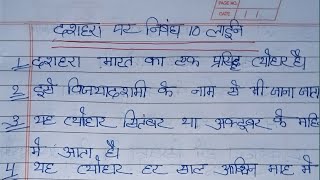 PAGE NO.
दशहरा पर निबंध 10 लाईन
1 दशहरा भारत का एक प्रसिद्ध त्योहार है।
2 इसे विजयादशमी के नाम से भी जाना जाता
3 यह त्योहार सितंबर या अक्टूबर के महिने
में आता है।
4 यह त्योहार हर साल अश्विन माह में